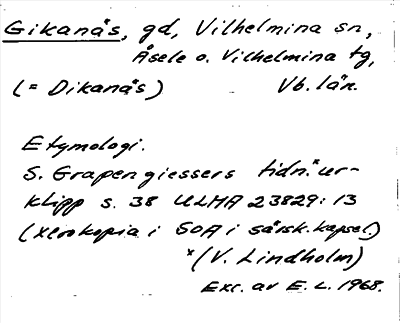 Gikanås, gd, Vilhelmina sn,
Åsele o. Vilhelmina tg,
(= Dikanäs) Vb. län.
Etymologi.
S. Grapengiessers tidn.ˣur-
klipp s. 38 ULMA 23829:13
(xerokopia i SOA i särsk. kapsel)
ˣ(V. Lindholm)
Exc. av E. L. 1968.